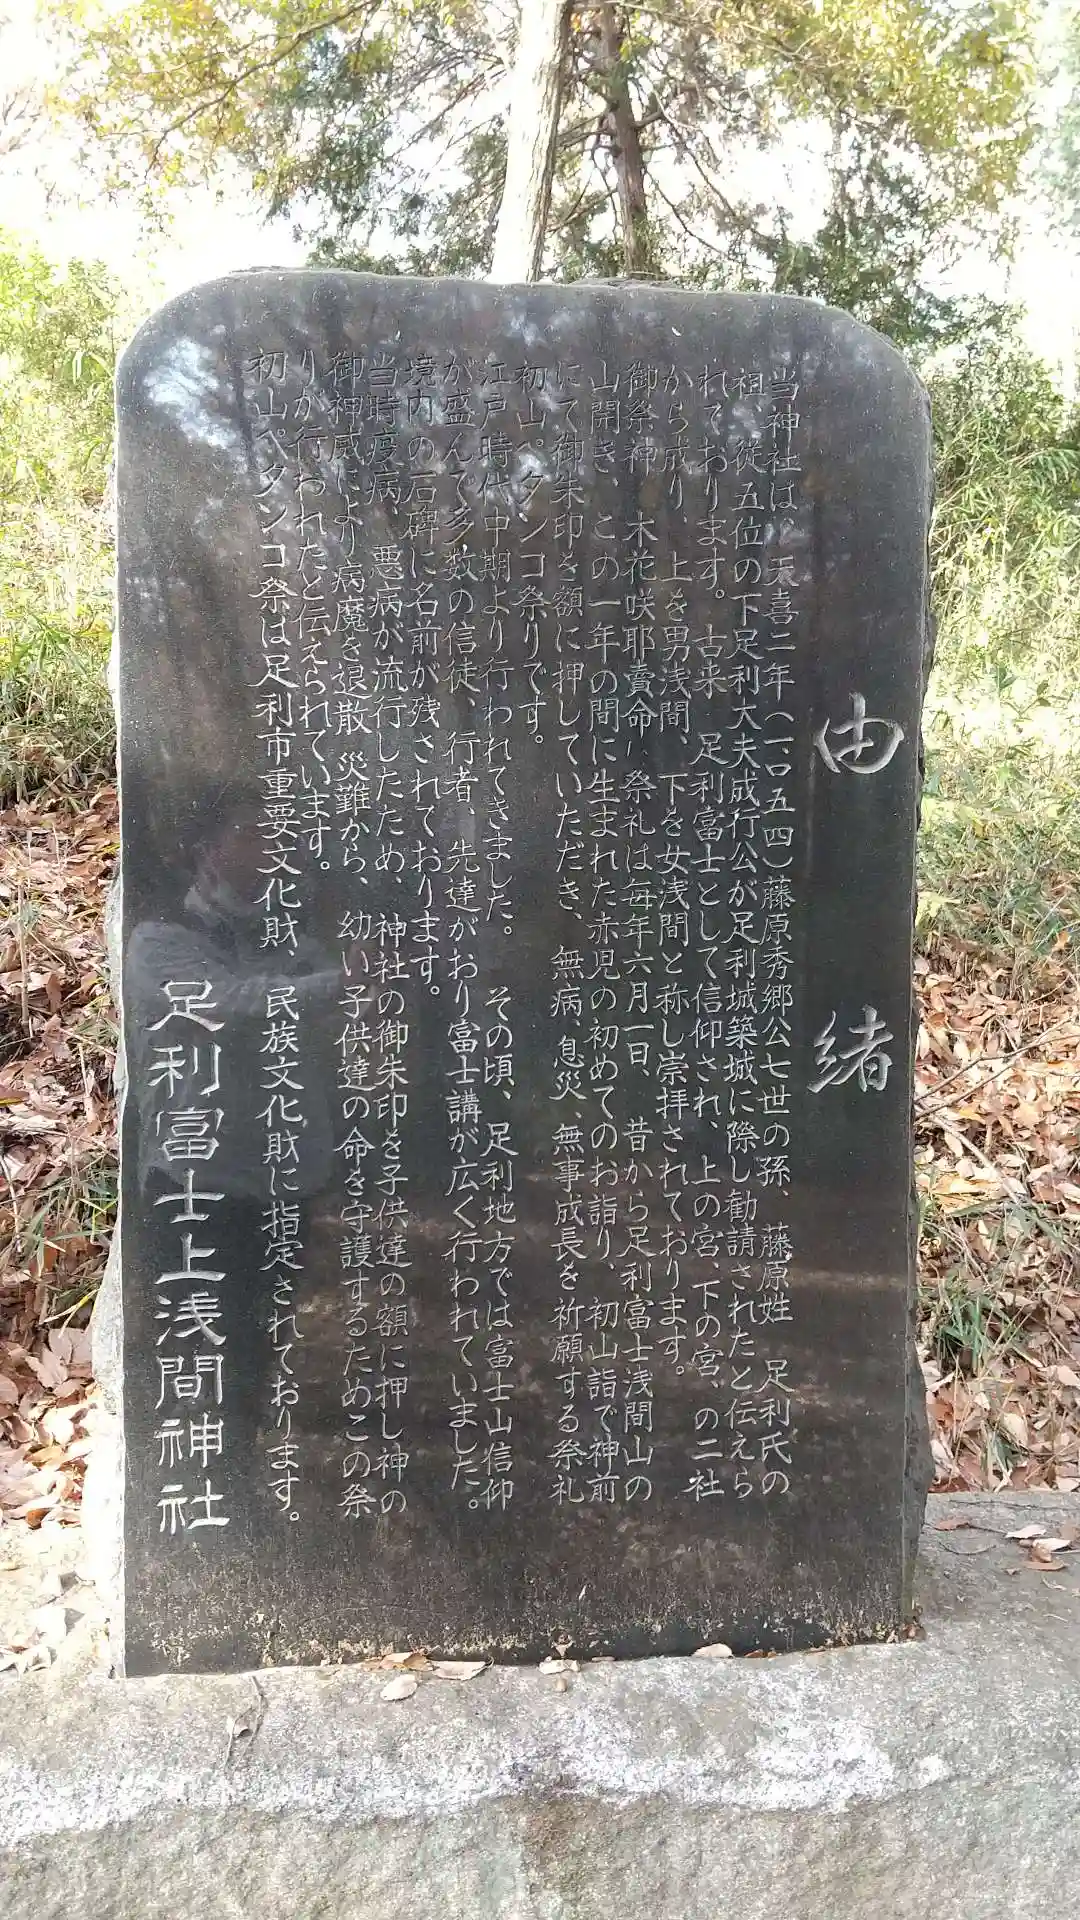 由緒
当神社は、天喜二年(一〇五四)藤原秀郷公七世の孫、藤原姓 足利氏の
祖、従五位の下足利大夫成行公が足利城築城に際し勧請されたと伝えら
れております。古来 足利富士として信仰され、上の宮、下の宮、の二社
から成り、上を男浅間、下を女浅間と称し崇拝されております。
御祭神 木花咲耶賣命、祭礼は毎年六月一日、昔から足利富士浅間山の
山開き、この一年の間に生まれた赤児の初めてのお詣り、初山詣で神前
にて御朱印を額に押していただき、無病、息災、無事成長を祈願する祭礼
初山ペタンコ祭りです。
江戸時代中期より行われてきました。その頃、足利地方では富士山信仰
が盛んで多数の信徒、行者、先達がおり富士講が広く行われていました。
境内の石碑に名前が残されております。
当時疫病、悪病が流行したため、神社の御朱印を子供達の額に押し神の
御神威により病魔を退散 災難から、幼い子供達の命を守護するためこの祭
りが行われたと伝えられています。
初山ペタンコ祭は足利市重要文化財、民族文化財に指定されております。
足利富士上浅間神社